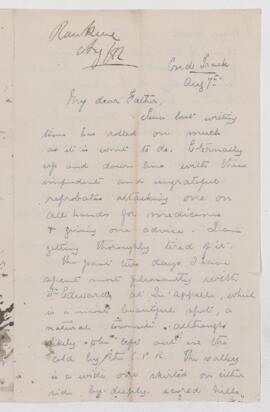 Rankine
Aug/82
End o' Track
Aug 7th
My dear Father,
Since last writing
time has rolled on much
as it is wont to do. Eternally
up and down line with these
impudent and ungrateful
reprobates attacking one on
all hands for medicines
& giving one advice. I am
getting thoroughly tired of it.
The past two days I have
spent most pleasantly with
Dr Edwards at Qu'appelle, which
is a most beautiful spot, a
natural although
likely to be left out in the
cold by the C.P.R. The valley
is a wide one skirted on either
side by deeply scored hills